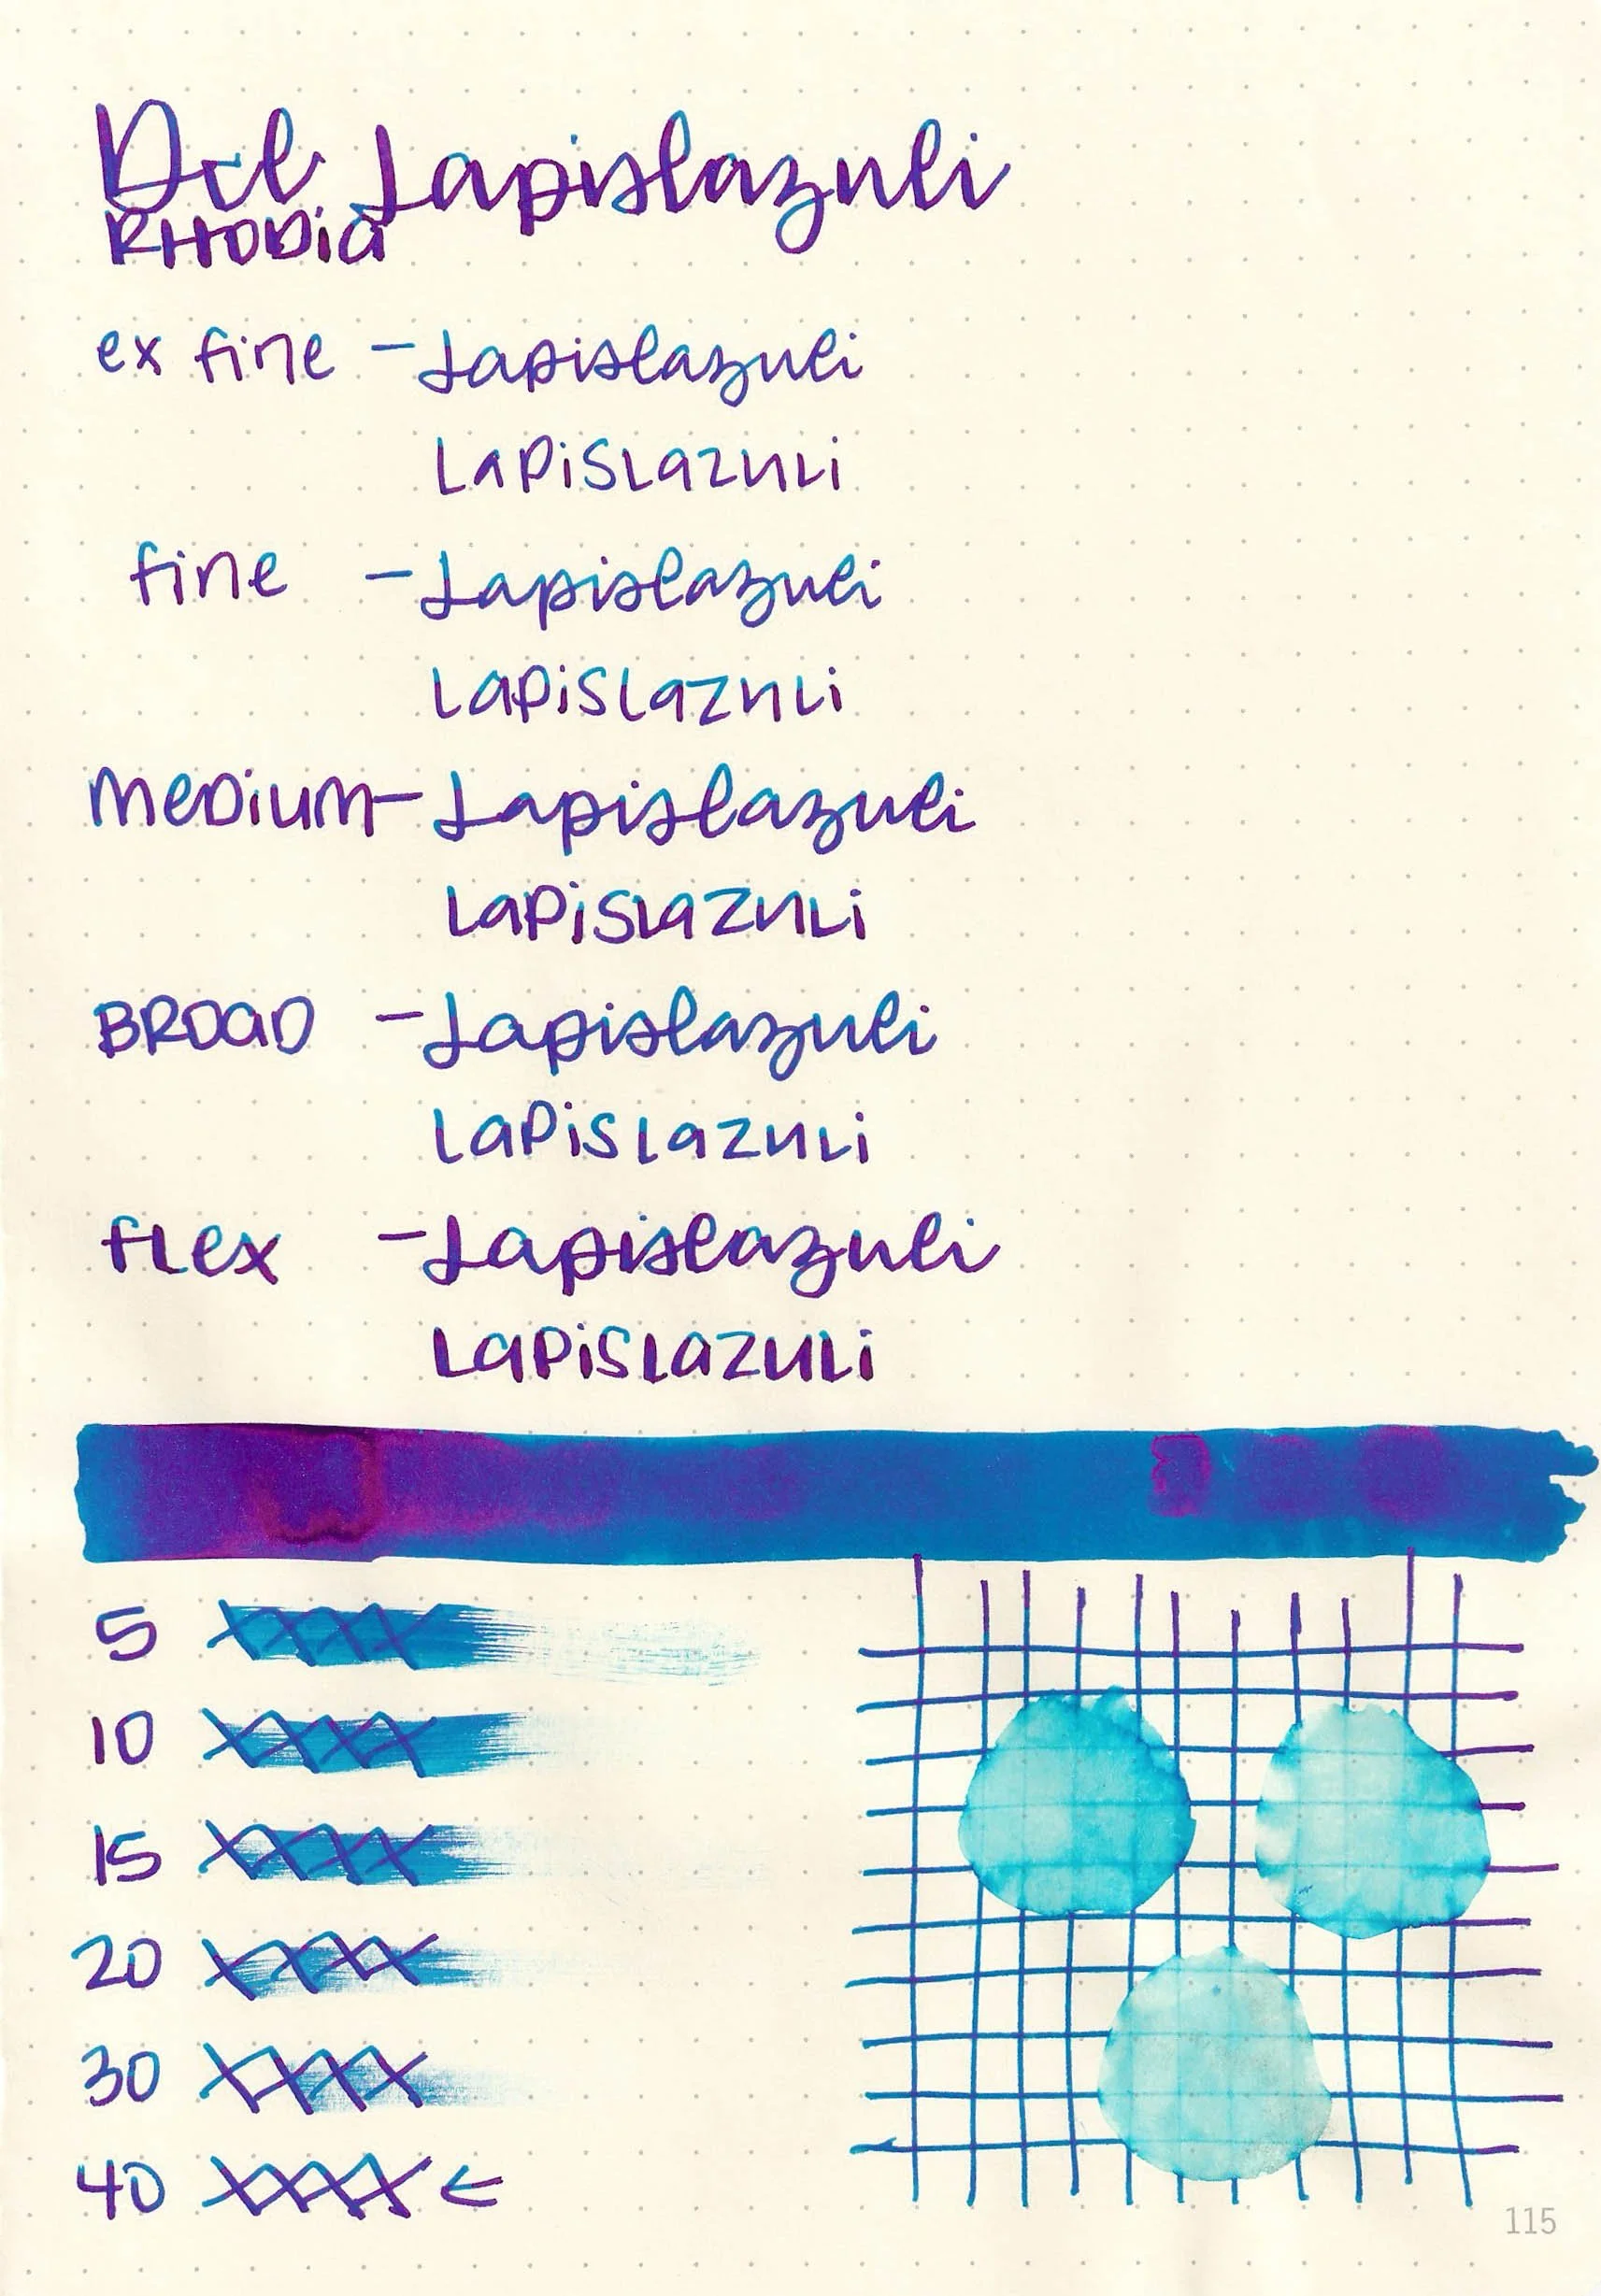 Dcl Lapislazuli
RHODia
ex fine - Lapislazuli
Lapislazuli
fine - Lapislazuli
Lapislazuli
MeDiuM - Lapislazuli
Lapislazuli
BROaD - Lapislazuli
Lapislazuli
fLex - Lapislazuli
Lapislazuli
5 XXXX
10 XXXX
15 XXXX
20 XXXX
30 XXXX
40 XXXX ←
115